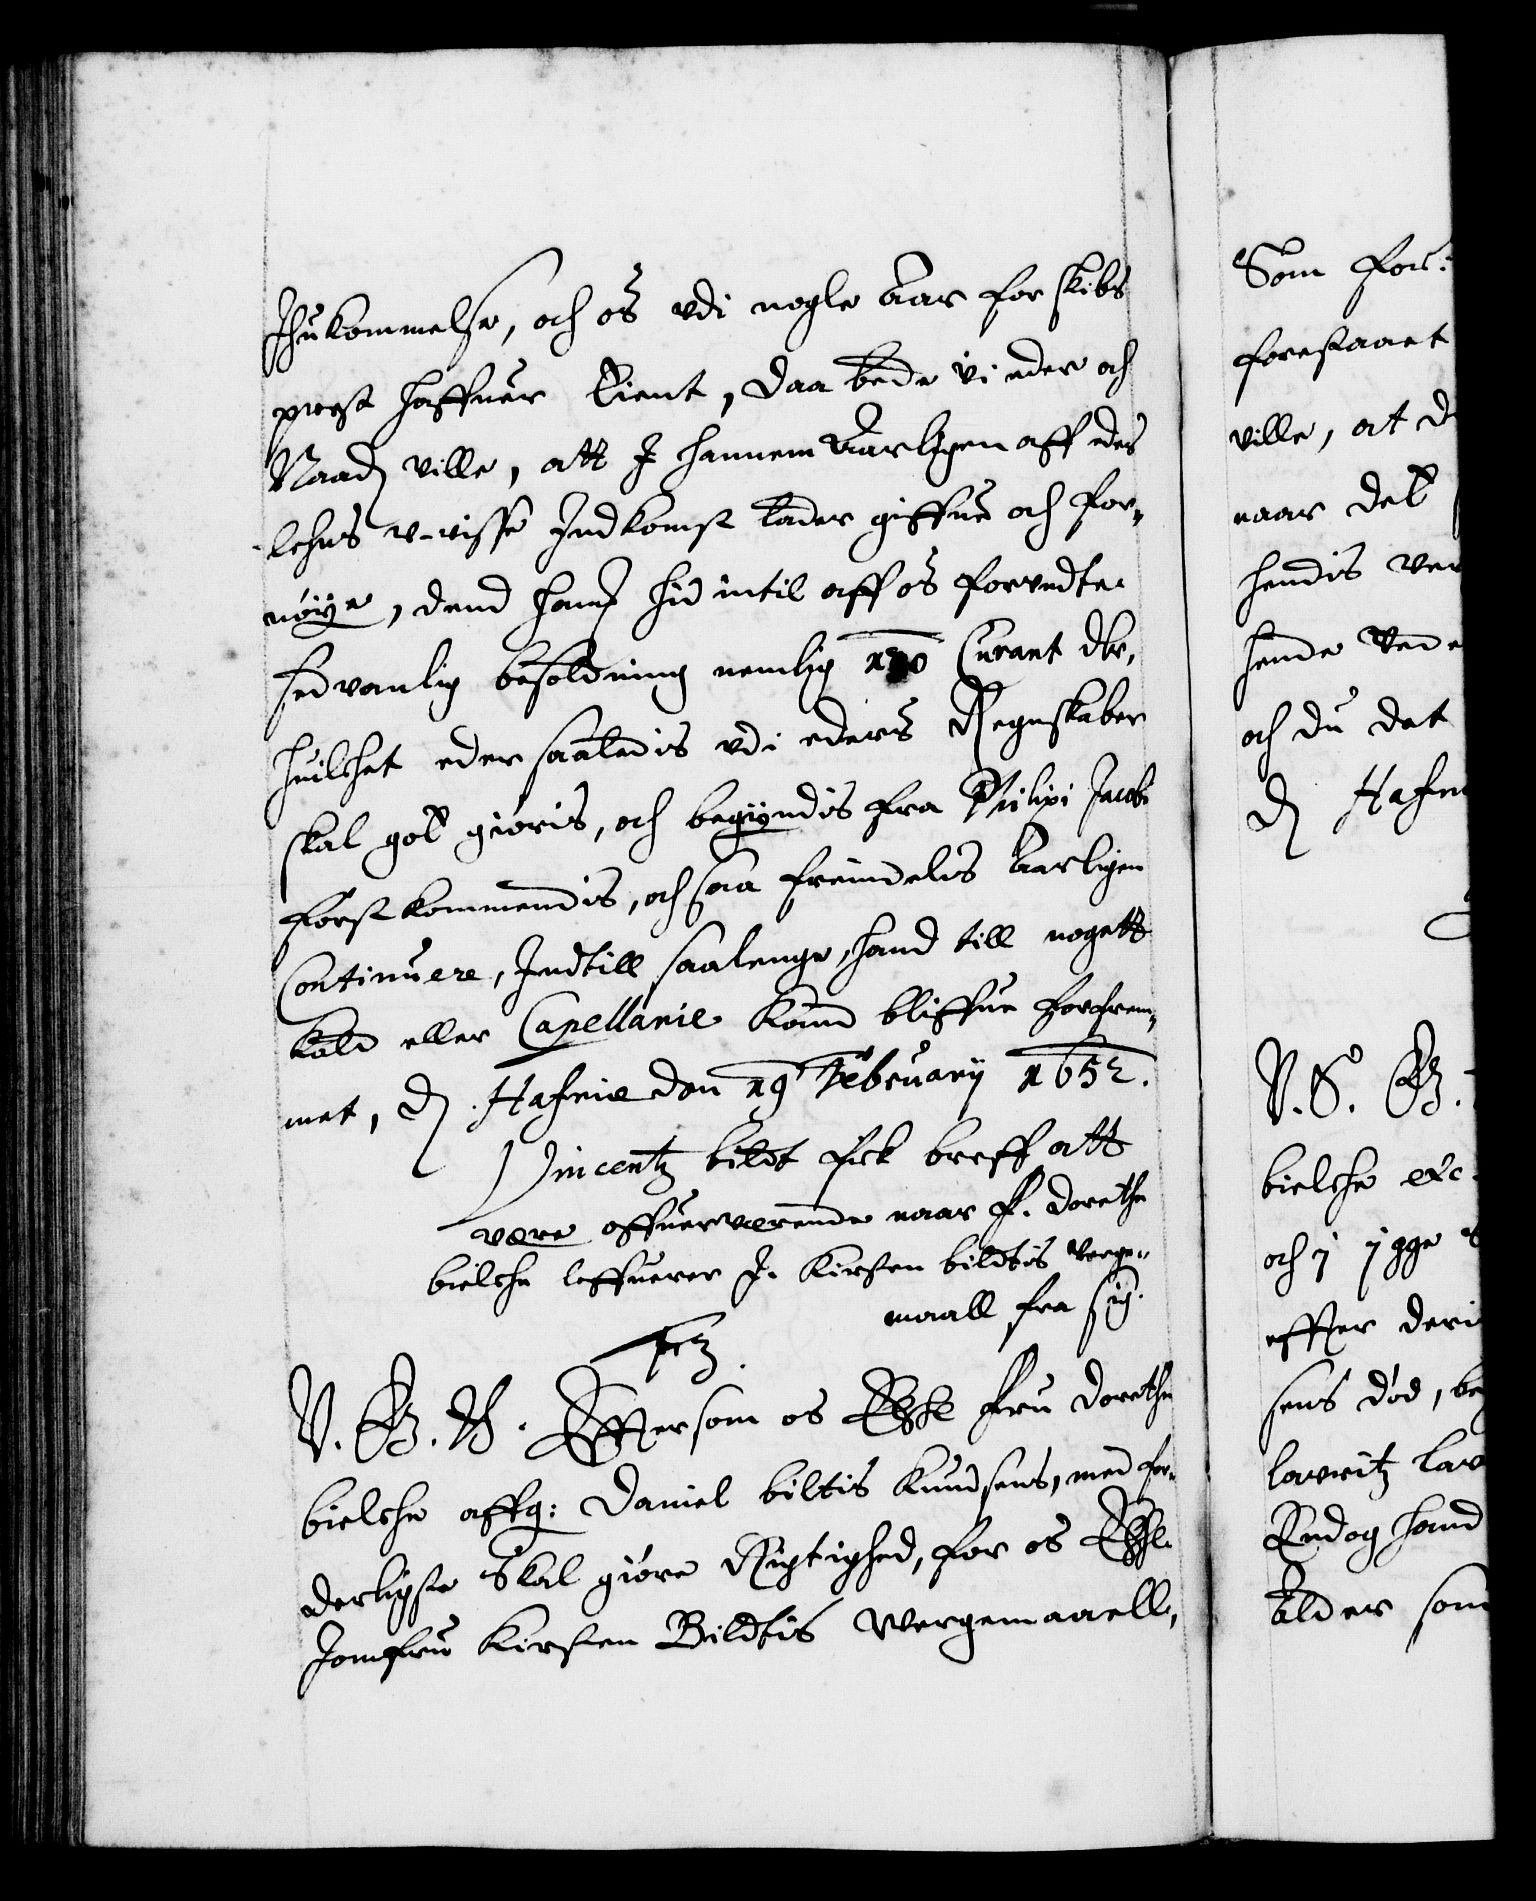 Ihukommelse, och os vdi nogle Aar for skibs
prest haffuer tient, Daa bede vi eder och
Naad: ville, att I hannem Aarligen aff eders
lehns v-visse Indkomst lader giffue och for-
nøye, dend hans hid intil aff os forundte
sedvanlig besoldning nemlig Curant dlr,
huilchet eder saaledis vdi eders Regnskaber
skal got giøris, och begyndis fra Philipi Jacobi
førstkommendis, och saa fremdelis Aarligen
Continuere, Indtill saalenge, hand till nogett
kald eller Capellanie kand bliffue forfrem-
met, D. Hafnie den 19 February 1652.
Vincentz bildt fick breff att
være offuerverende naar F. Dorethe
bielche leffuerer J. Kirsten bildtis Verge-
maall fra sig.
V. G. T. Effter som os Ehl: Fru Dorethe
bielche affg: Daniel biltis Knudsens, med for-
derligste Skal giøre Rigtighed, for os Ehl.
Jomfru Kirsten Bildtis Wergemaaell,
Som for:
forestaaet
ville, at d
naar det
hendis ver
hende Ved e
och du det
D Hafn
V. S. G.
bielche etc.
och j ygge
effter deri
sens død, be
lauritz lau
Endog hand
Alder som